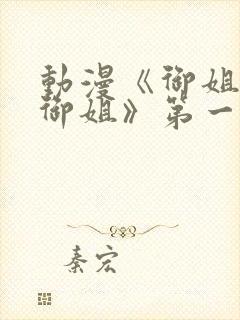 動漫《御姐
御姐》第一
秦宏